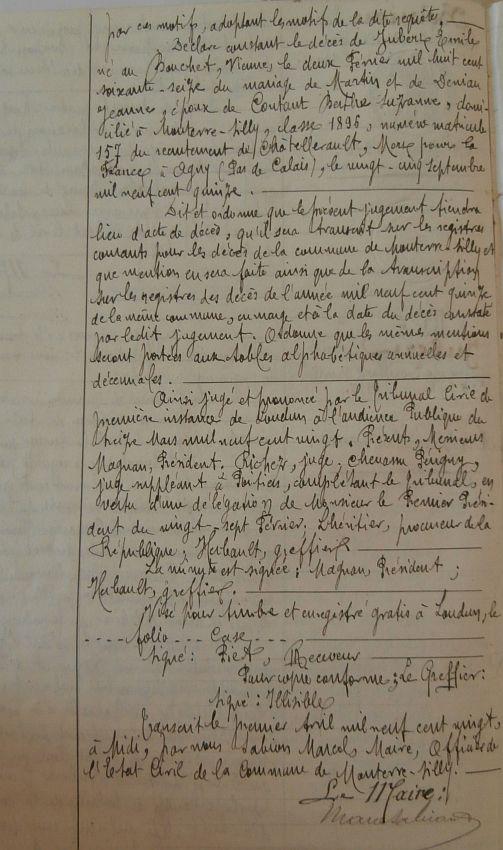 par ces motifs, adoptant les motifs de la dite requête.
Déclare constant le décès de Jubert Emile
né au Bouchet, Vienne, le deux Février mil huit cent
soixante-seize du mariage de Martin et de Deniau
Jeanne, époux de Coutant Berthe Suzanne, domi-
cilié à Mouterre-Silly, classe 1896, numéro matricule
157 du recrutement de Châtellerault, Mort pour la
France à Agny (Pas de Calais), le vingt-cinq septembre
mil neuf cent quinze.
Dit et ordonne que le présent jugement tiendra
lieu d'acte de décès, qu'il sera transcrit sur les registres
courants pour les décès de la commune de Mouterre-Silly et
que mention en sera faite ainsi que de la transcription
sur les registres des décès de l'année mil neuf cent quinze
de la même commune, en marge et à la date du décès constaté
par ledit jugement. Ordonne que les mêmes mentions
seront portées aux tables alphabétiques annuelles et
décennales.
Ainsi jugé et prononcé par le Tribunal Civil de
première instance de Loudun à l'audience Publique du
treize Mars mil neuf cent vingt. Présents, Messieurs
Magnan, Président. Richez, juge. Chevassu Périgny,
juge suppléant à Poitiers, complétant le Tribunal, en
vertu d'une délégation de Monsieur le Premier Prési-
dent du vingt-sept Février. Lhéritier, procureur de la
République; Herbault, greffier
La minute est signée: Magnan, Président;
Herbault, greffier.
Visé pour timbre et enregistré gratis à Loudun, le
---- folio --- Case ----
signé: Piet, Receveur
Pour copie conforme; Le Greffier:
signé: Illisible
Transcrit le premier Avril mil neuf cent vingt,
à Midi, par nous Marcel, Maire, Officier de
l'Etat Civil de la Commune de Mouterre-Silly.
Le Maire: